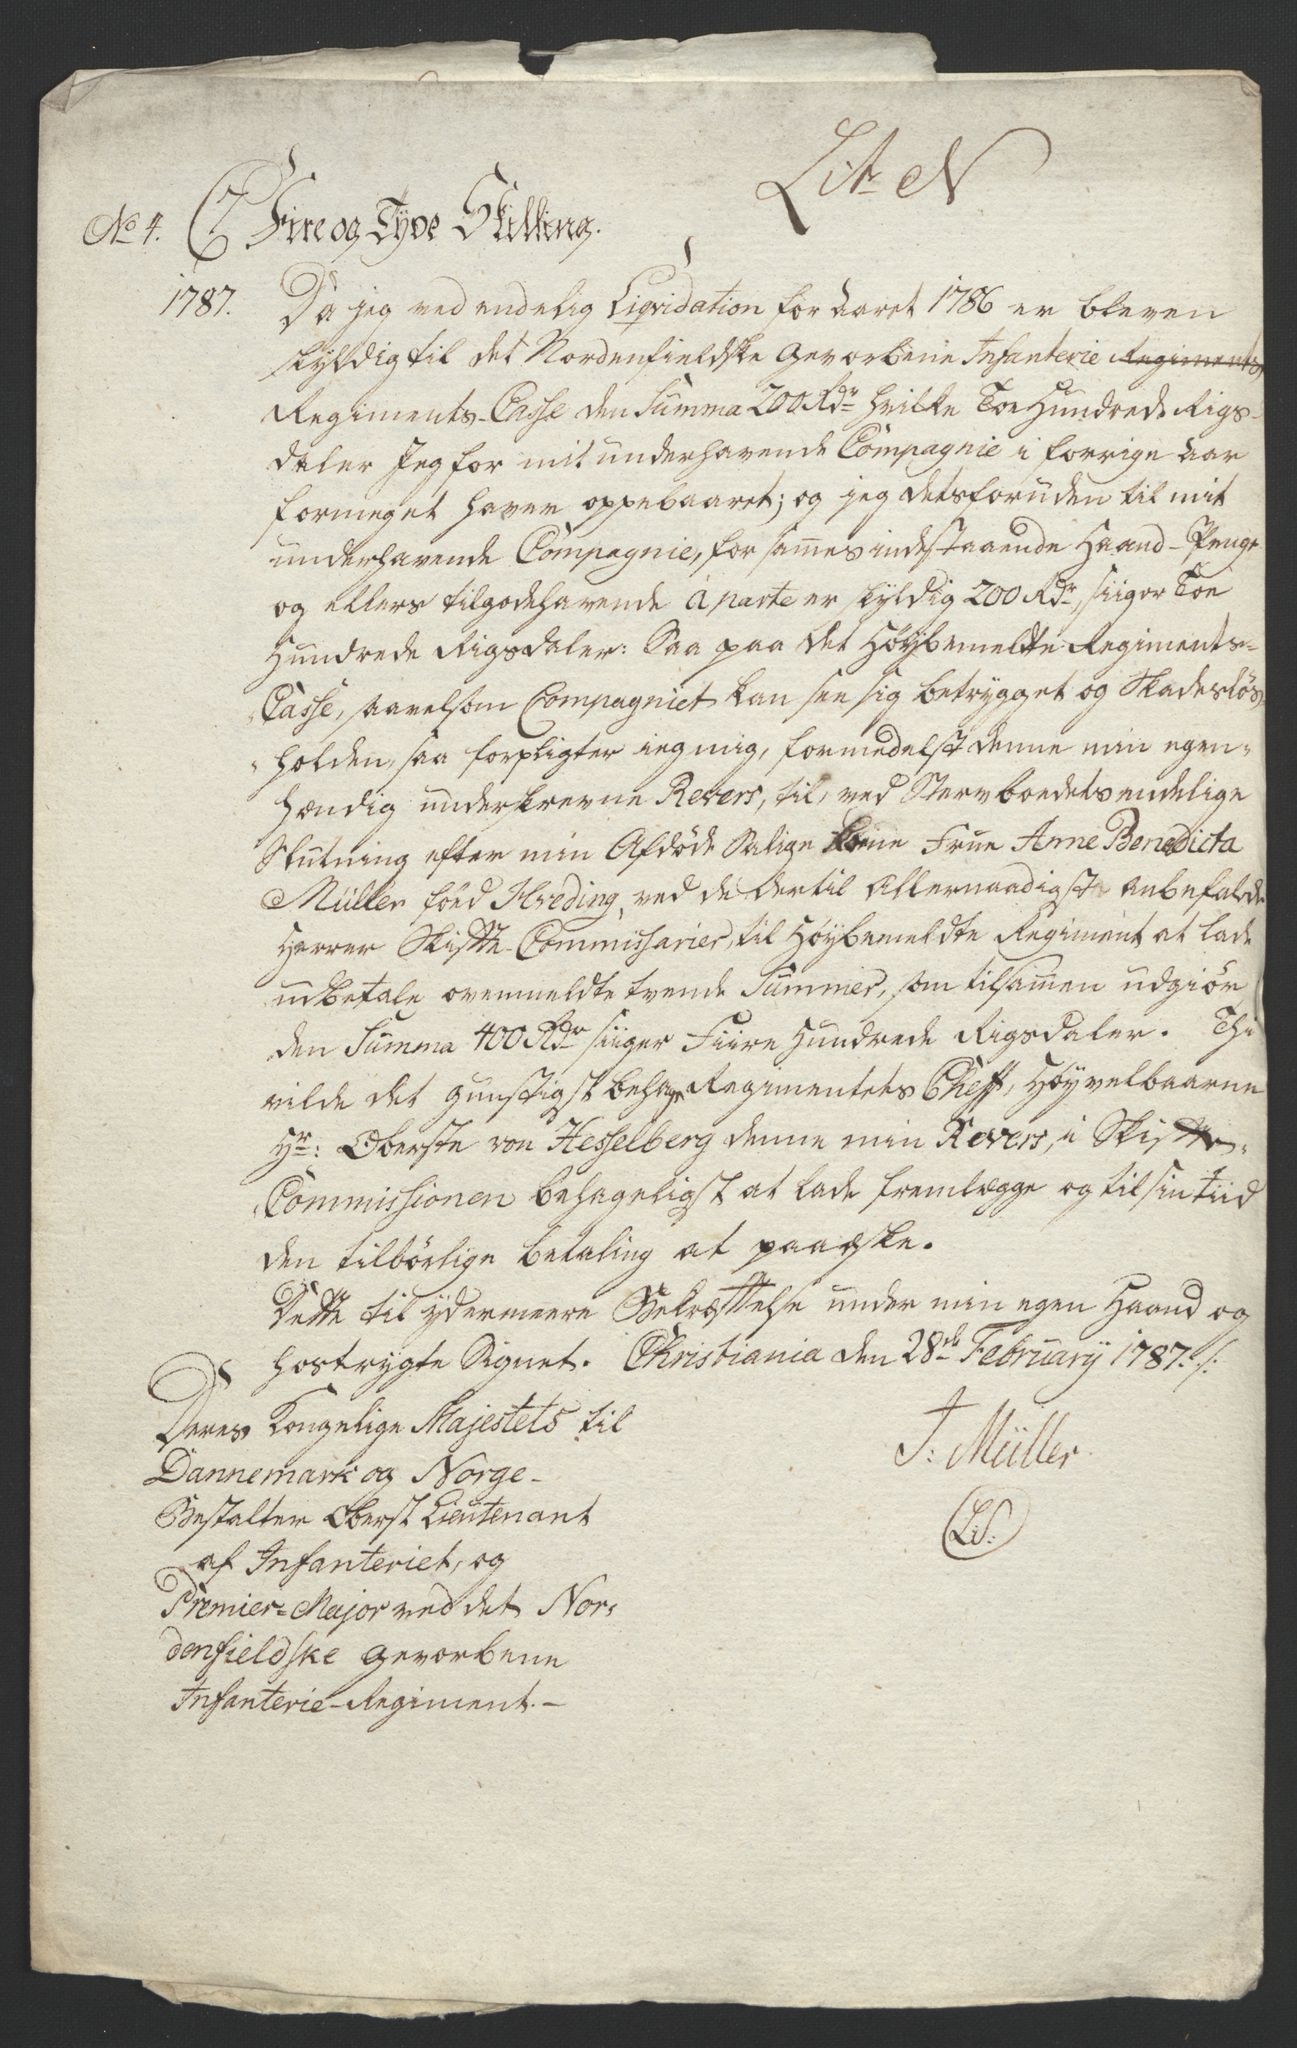 Lit. N
No 4. C7 Fire og Tyve Skilling.
1787. Da jeg ved endelig Liqvidation for Aaret 1786 er bleven
skyldig til det Nordenfieldske Gevorbene Infanterie Regiments
Regiments-Casse den Summa 200 Rdr hvilke Toe Hundrede Rigs-
daler Jeg for mit underhavende Compagnie i forrige Aar
formeget haver oppebaaret; og jeg detsforuden til mit
underhavende Compagnie, for sammes indestaaende Haand-Penge
og ellers tilgodehavende à parte er skyldig 200 Rdr, siiger Toe
Hundrede Rigsdaler: Saa paa det Høybemeldte Regiments-
Casse, saavelsom Compagniet kan see sig betrygget og Skadesløs
holden, saa forpligter ieg mig, formedelst denne min egen-
hændig underskrevne Revers, til, ved Stervboedets endelige
Slutning efter min Afdøde Salige Kone Frue Anne Benedicta
Müller fød Hveding, ved de dertil Allernaadigst anbefalede
Herrer Skifte-Commissarier, til Høybemeldte Regiment at lade
udbetale ovenmeldte tvende Summer, som tilsammen udgiør
den Summa 400 Rdr siiger Fiire Hundrede Rigsdaler. Thi
vilde det gunstigst behage Regimentets Cheff, Høyvelbaarne
Hr: Oberste von Hesselberg denne min Revers, i Skifte-
Commissionen behageligst at lade fremlægge og til sin Tiid
den tilbørlige betaling at paaæske.
Dette til ydermeere Bekræftelse under min egen Haand og
hostrygte Signet. Christiania den 28de February 1787 ./.
Deres Kongelige Majestets til
Dannemark og Norge
Bestalter Oberst Lieutenant
af Infanteriet, og
Premier-Major ved det Nor-
denfieldske gevorbene
Infanterie-Regiment.-
J: Müller
LS.